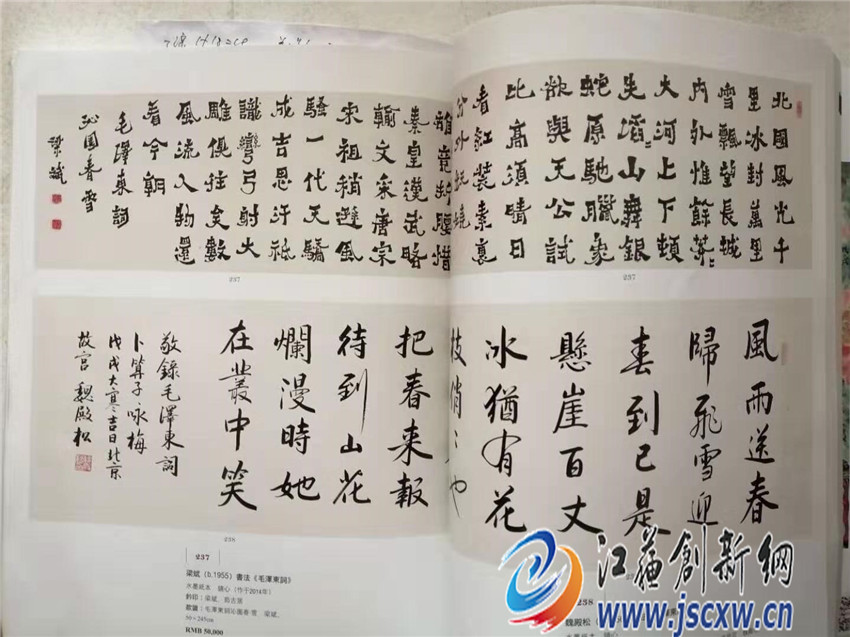 北國風光千
里冰封萬里
雪飄望長城
內外惟餘莽〻
大河上下頓
失滔〻山舞銀
蛇原馳臘象
欲與天公試
比高須晴日
看紅裝素裹
分外妖嬈
雄竞折腰惜
秦皇漢武略
輸文采唐宗
宋祖稍遜風
騷一代天驕
成吉思汗祗
識彎弓射大
雕俱往矣數
風流人物還
看今朝
毛澤東詞
沁園春雪
梁斌
237
237
風雨送春
歸飛雪迎
春到已是
懸崖百丈
冰猶有花
枝俏〻也
把春來報
待到山花
爛漫時她
在叢中笑
敬錄毛澤東詞
卜算子·咏梅
戊戌大寒吉日北京
故宮 魏殿松
236
237
梁斌（b.1955）書法《毛澤東詞》
水墨紙本 鏡心（作于2014年）
鈐印：梁斌
款識：毛澤東詞沁園春 雪 梁斌。
50×245cm
RMB 50,000
238
魏殿松
江蘇創新網
www.jscxw.cn